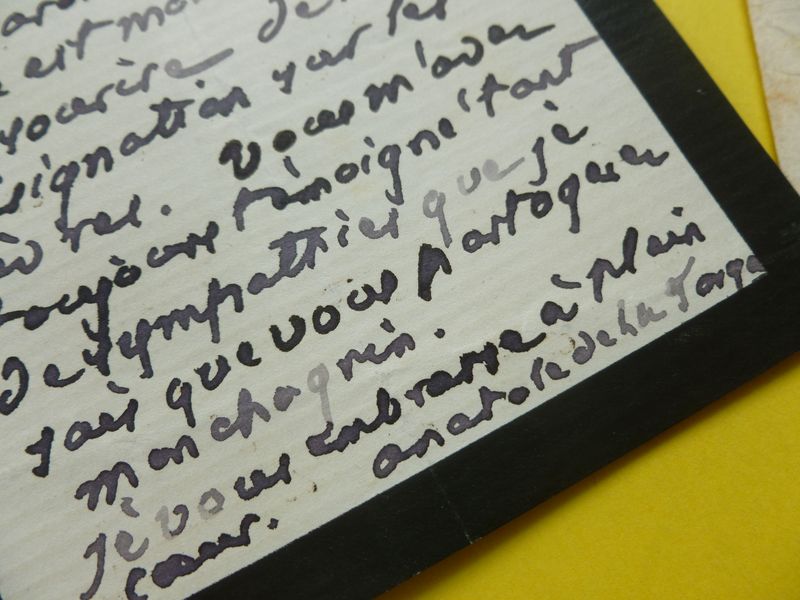 est mo
sourire de
signation sur ses
lèvres. vous m'avez
toujours témoigné tant
de sympathies que je
sais que vous partagerez
mon chagrin.
je vous embrasse à plein
cœur. anatole de la